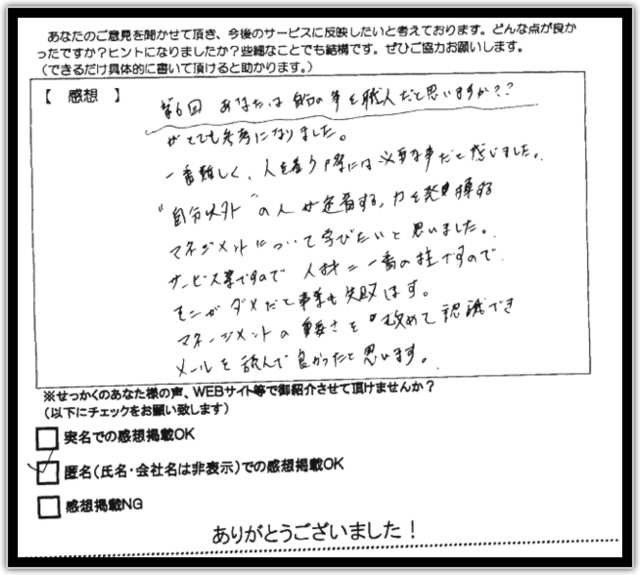 あなたのご意見を聞かせて頂き、今後のサービスに反映したいと考えております。どんな点が良か
ったですか？ヒントになりましたか？些細なことでも結構です。ぜひご協力お願いします。
（できるだけ具体的に書いて頂けると助かります。）
【 感想 】
第6回 あなたは自分の事を職人だと思いますか？？
がとても参考になりました。
一番難しく、人を雇う際には必要な事だと感じました。
"自分以外"の人が定着する、力を発揮する
マネジメントについて学びたいと思いました。
サービス業ですので 人材＝一番の柱ですので
そこがダメだと事業も失敗します。
マネージメントの重要さを改めて認識でき
メールを読んで良かったと思います。
※せっかくのあなた様の声、WEBサイト等で御紹介させて頂けませんか？
（以下にチェックをお願い致します）
実名での感想掲載OK
匿名（氏名・会社名は非表示）での感想掲載OK
感想掲載NG
ありがとうございました！